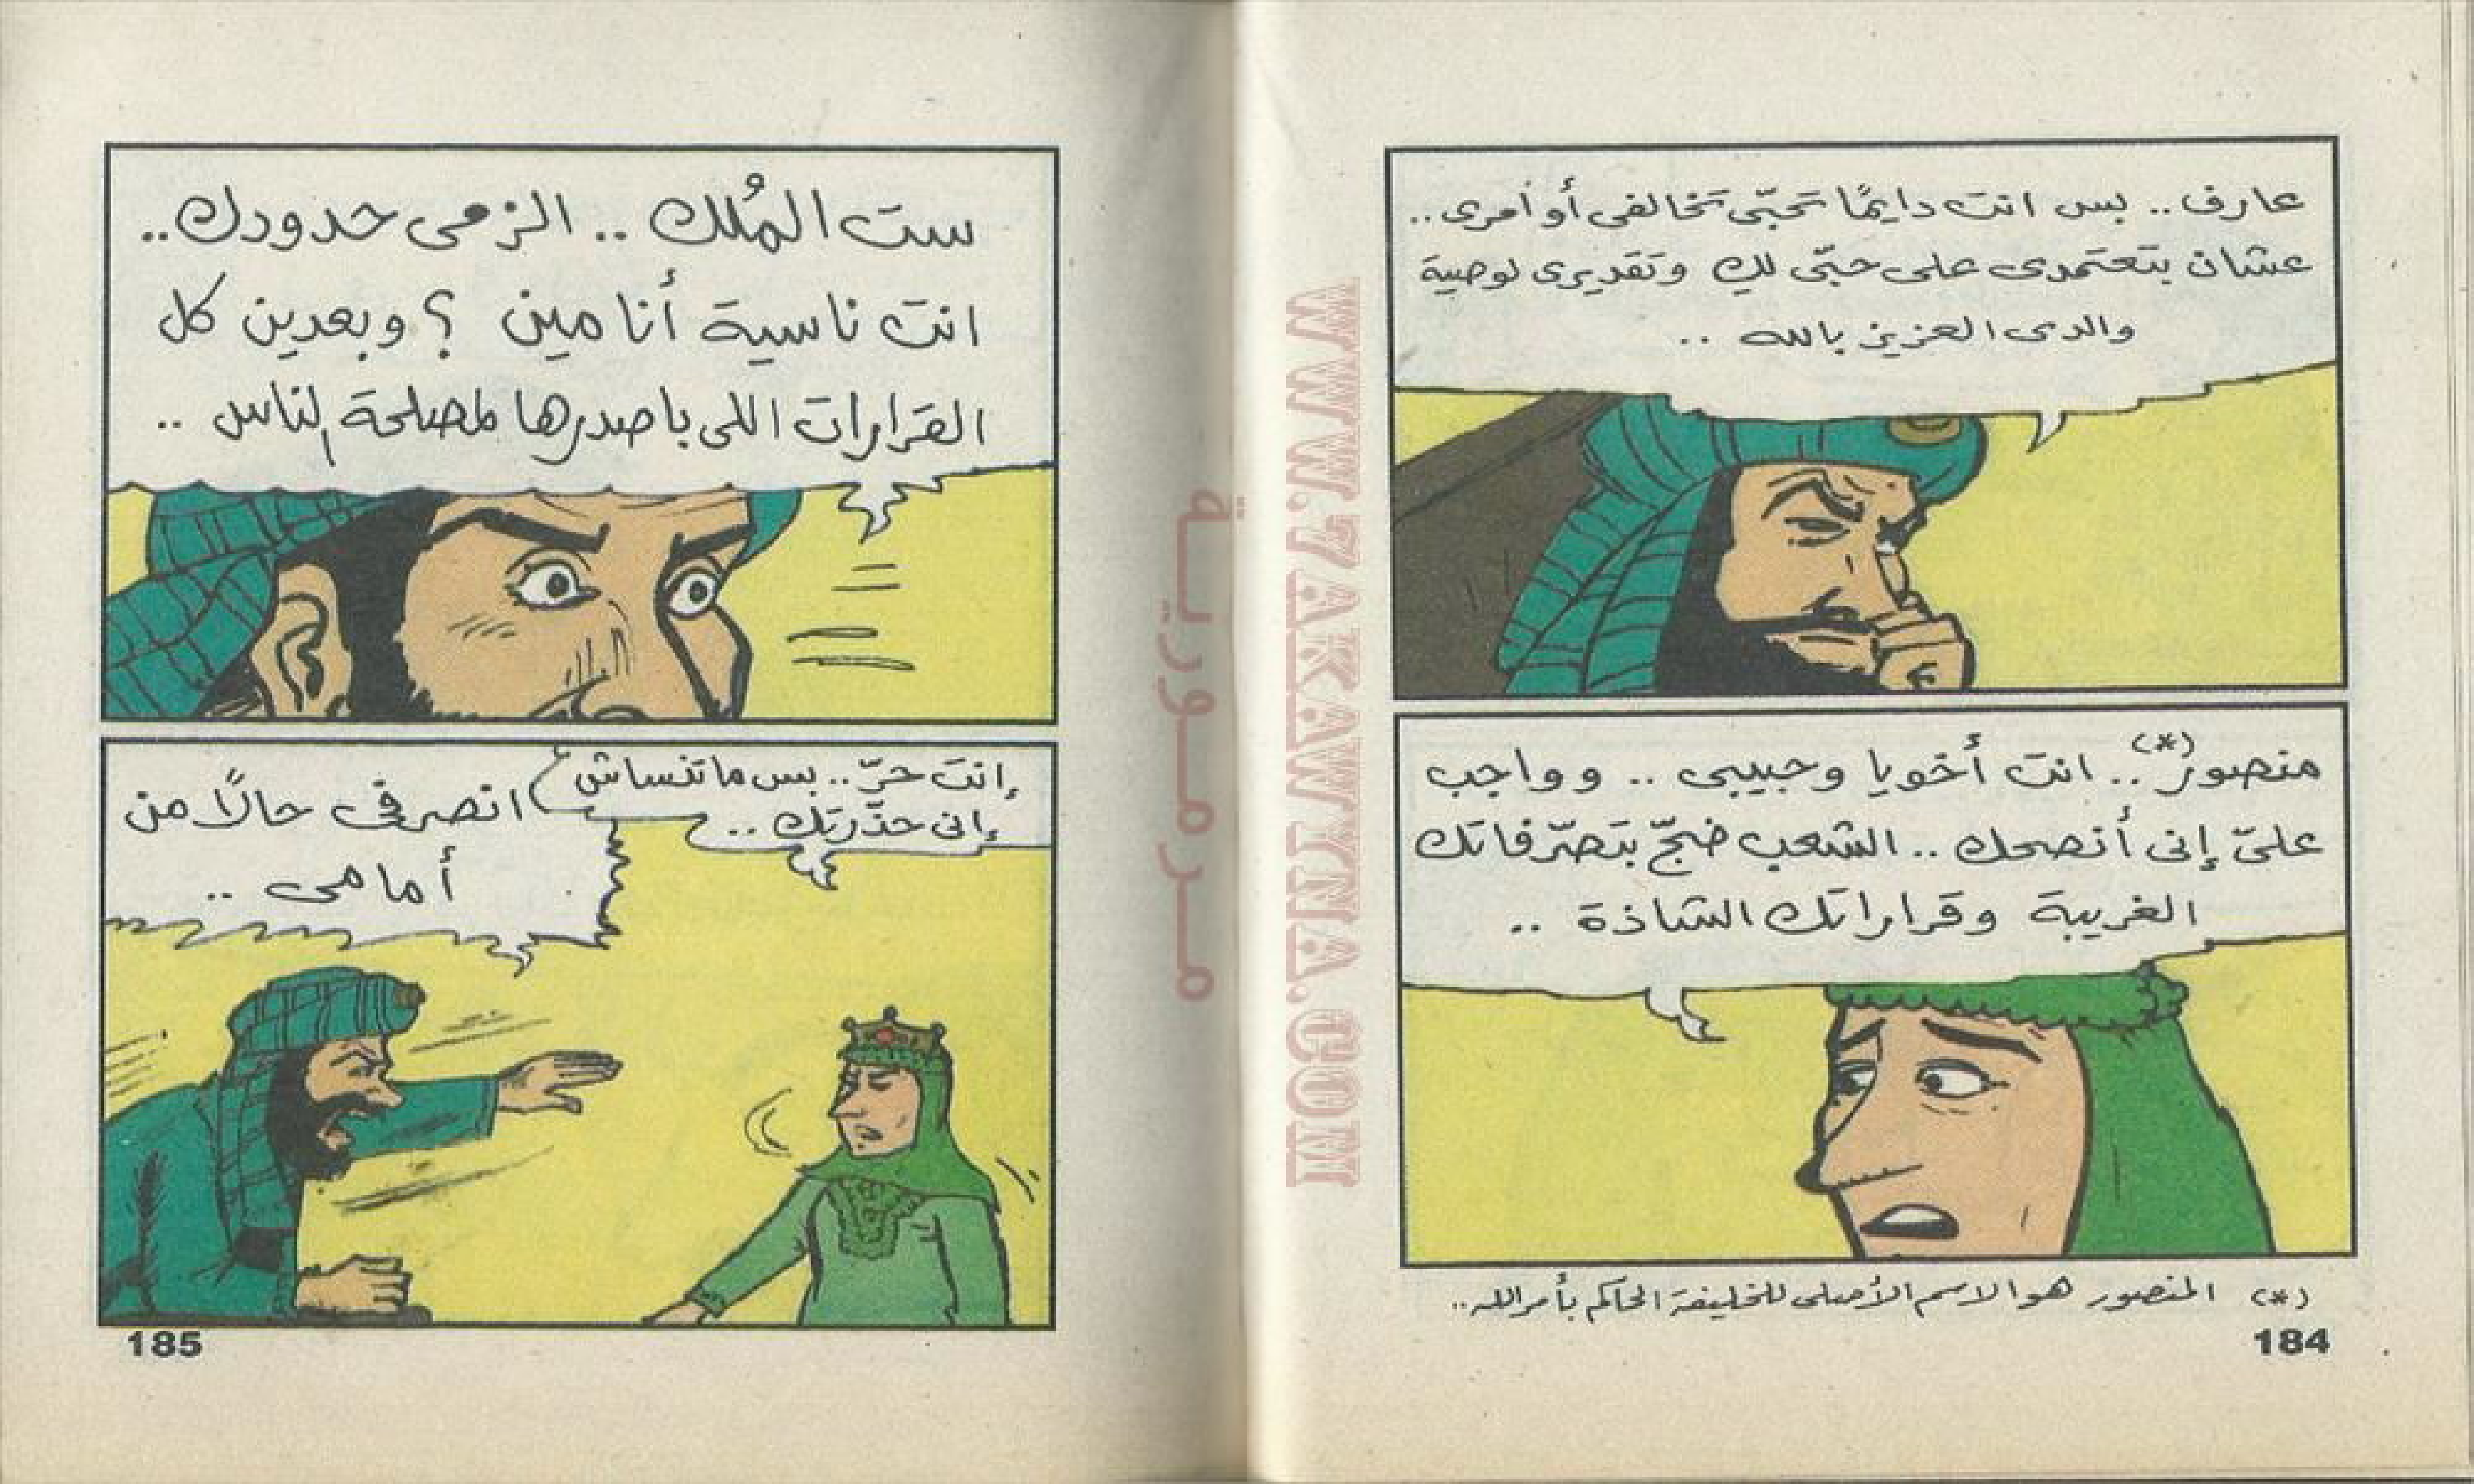 عارف.. بس انت دايمًا تحبّى تخالفى أوامرى..
عشان بتعتمدى على حبّى لكِ وتقديرى لوصية
والدى العزيز بالله ..
منصور(*).. انت أخويا وحبيبى .. وواجب
علىّ إنى أنصحك .. الشعب ضجّ بتصرّفاتك
الغريبة وقراراتك الشاذة ..
(*) المنصور هو الاسم الأصلى للخليفة الحاكم بأمر الله..
184
ست المُلك .. الزمى حدودك..
انت ناسية أنا مين ؟ وبعدين كل
القرارات اللى باصدرها لمصلحة الناس ..
إنت حرّ .. بس ما تنساش
إنى حذّرتك ..
انصرفى حالًا من
أمامى ..
185
مرمورية
WWW.7AKAWATNA.COM